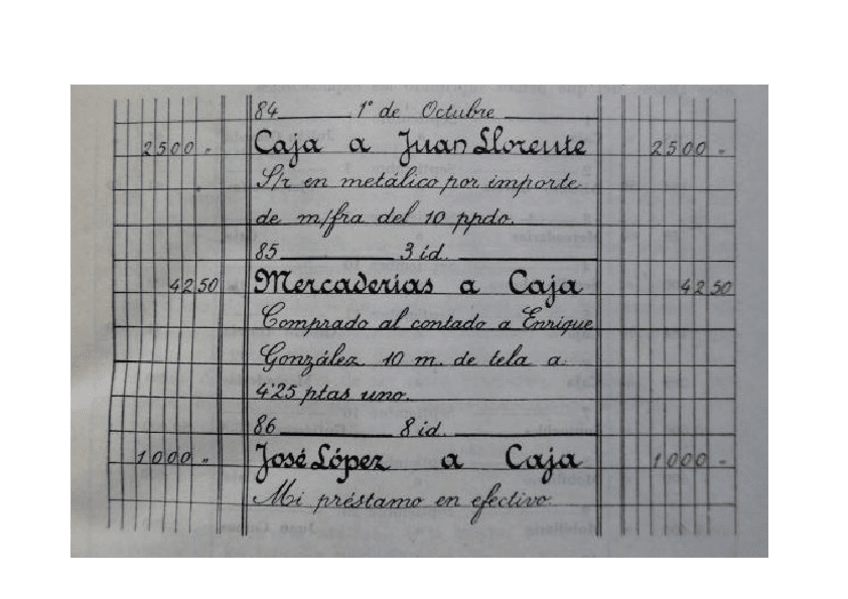 84 1º de Octubre
2500 - Caja a Juan Llorente 2500 -
S/r en metálico por importe
de m/fra del 10 ppdo.
85 3 id.
42 50 Mercaderías a Caja 42 50
Comprado al contado a Enrique
González 10 m. de tela a
4'25 ptas uno.
86 8 id.
1000 - José López a Caja 1000 -
Mi préstamo en efectivo.